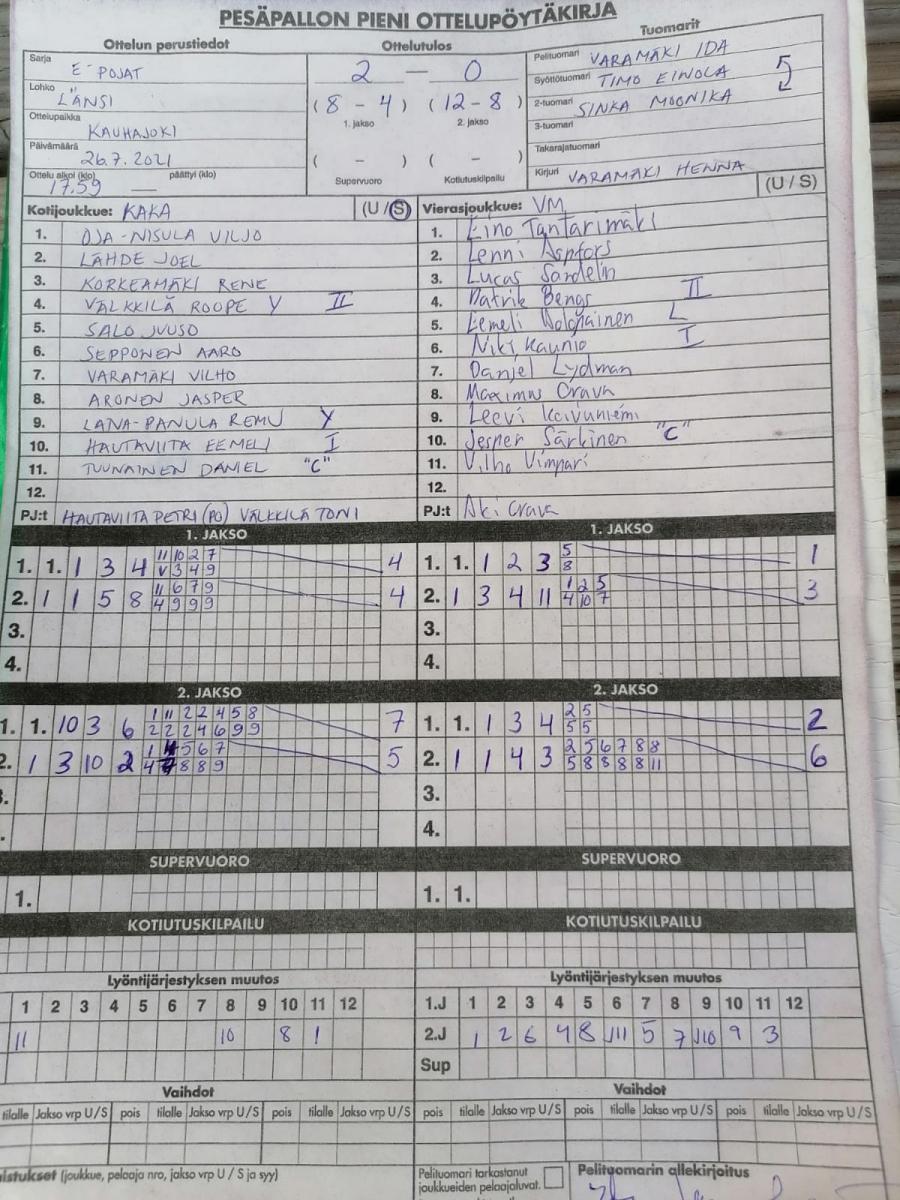 PESÄPALLON PIENI OTTELUPÖYTÄKIRJA
Ottelun perustiedot
Sarja E-POJAT
Lohko LÄNSI
Ottelupaikka KAUHAJOKI
Päivämäärä 26.7.2021
Ottelu alkoi (klo) 17.59 päättyi (klo) —
Ottelutulos
2 — 0
( 8 - 4 ) ( 12 - 8 )
1. jakso 2. jakso
( - ) ( - )
Supervuoro Kotiutuskilpailu
Tuomarit
Pelituomari VARAMÄKI IDA
Syöttötuomari TIMO EINOLA
2-tuomari SINKA MOONIKA
3-tuomari
Takarajatuomari
Kirjuri VARAMÄKI HENNA
Kotijoukkue: KAKA (U / S)
1. OJA-NISULA VILJO
2. LÄHDE JOEL
3. KORKEAMÄKI RENE
4. VÄLKKILÄ ROOPE Y II
5. SALO JUUSO
6. SEPPONEN AARO
7. VARAMÄKI VILHO
8. ARONEN JASPER
9. LANA-PANULA REMU Y
10. HAUTAVIITA EEMELI I
11. TUUNAINEN DANIEL "C"
12.
PJ:t HAUTAVIITA PETRI (PO) VÄLKKILÄ TONI
Vierasjoukkue: VM (U / S)
1. Eino Tantarimäki
2. Lenni Aspfors
3. Lucas Sandelin
4. Patrik Bengs II
5. Eemeli L
6. Niki Kaunio I
7. Daniel Lydman
8. Maximus Crava
9. Leevi Koivuniemi
10. Jesper Särkinen "C"
11. Vilho Vimpari
12.
PJ:t Aki Crava
1. JAKSO
1. 1. 1 3 4 11 10 2 7 4
V 3 4 9
2. 1 1 5 8 11 6 7 9 4
4 9 9 9
3.
4.
1. JAKSO
1. 1. 1 2 3 5 1
8
2. 1 3 4 11 1 2 5 3
4 10 7
3.
4.
2. JAKSO
1. 1. 10 3 6 1 11 2 2 4 5 8 7
2 2 2 4 6 9 9
2. 1 3 10 2 1 4 5 6 7 5
4 7 8 8 9
2. JAKSO
1. 1. 1 3 4 2 5 2
5 5
2. 1 1 4 3 2 5 6 7 8 8 6
5 8 8 8 8 11
3.
4.
SUPERVUORO
1.
SUPERVUORO
1. 1.
KOTIUTUSKILPAILU
KOTIUTUSKILPAILU
Lyöntijärjestyksen muutos
1 2 3 4 5 6 7 8 9 10 11 12
11 10 8 1
Lyöntijärjestyksen muutos
1.J 1 2 3 4 5 6 7 8 9 10 11 12
2.J 1 2 6 4 8 J11 5 7 J10 9 3
Sup
Vaihdot
tilalle Jakso vrp U/S pois tilalle Jakso vrp U/S pois tilalle Jakso vrp U/S
Vaihdot
pois tilalle Jakso vrp U/S pois tilalle Jakso vrp U/S pois tilalle Jakso vrp U/S
(joukkue, pelaaja nro, jakso vrp U / S ja syy)
Pelituomari tarkastanut
joukkueiden pelaajaluvat.
Pelituomarin allekirjoitus